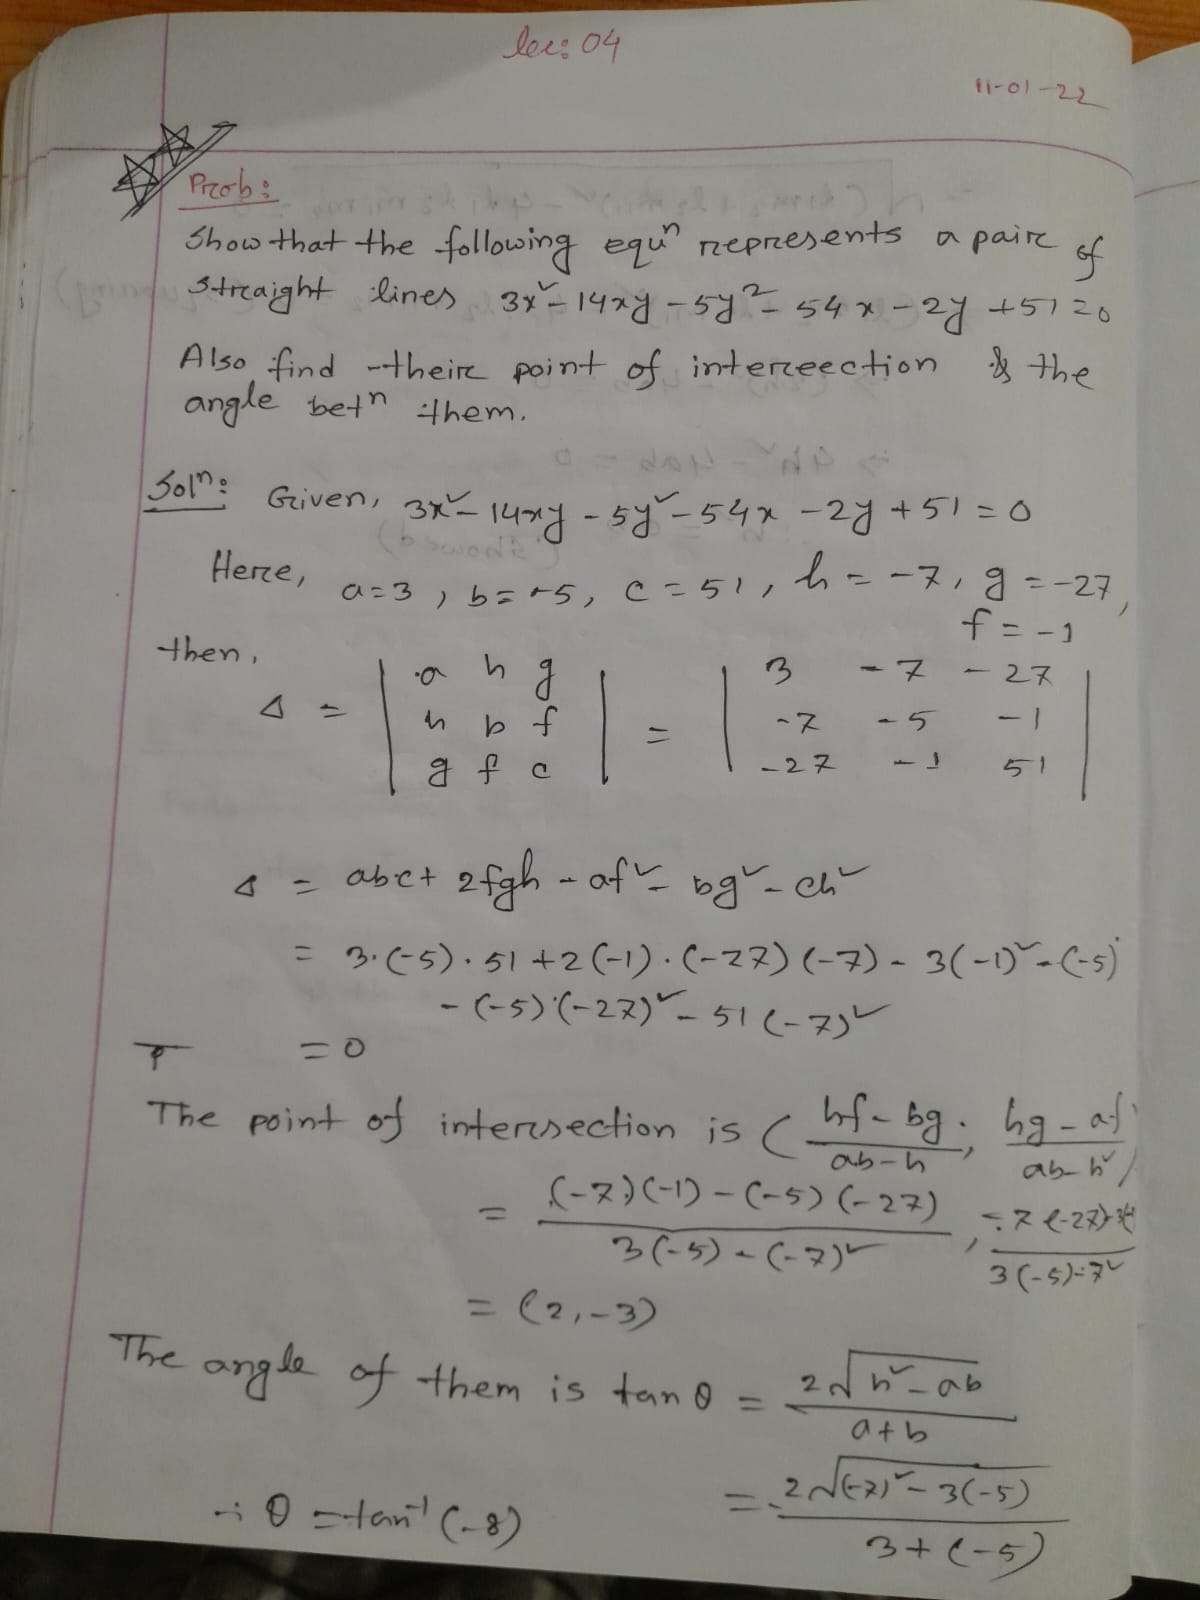 lec: 04
11-01-22
Prob:
Show that the following equⁿ represents a pair of
straight lines 3x² - 14xy - 5y² - 54x - 2y + 51 = 0
Also find their point of interseection & the
angle betⁿ them.
Solⁿ: Given, 3x² - 14xy - 5y² - 54x - 2y + 51 = 0
Here, a=3, b=-5, c=51, h=-7, g=-27,
f=-1
then,
Δ = | a h g | = | 3 -7 -27 |
| h b f | | -7 -5 -1 |
| g f c | | -27 -1 51 |
Δ = abc + 2fgh - af² - bg² - ch²
= 3·(-5)·51 + 2(-1)·(-27)(-7) - 3(-1)² - (-5)
- (-5)(-27)² - 51(-7)²
= 0
The point of intersection is ( hf - bg / ab - h , hg - af / ab - h² )
= (-7)(-1) - (-5)(-27) / 3(-5) - (-7)² , -7(-27) / 3(-5) - 7²
= (2, -3)
The angle of them is tan θ = 2√h² - ab / a + b
= 2√(-7)² - 3(-5) / 3 + (-5)
∴ θ = tan⁻¹ (-8)